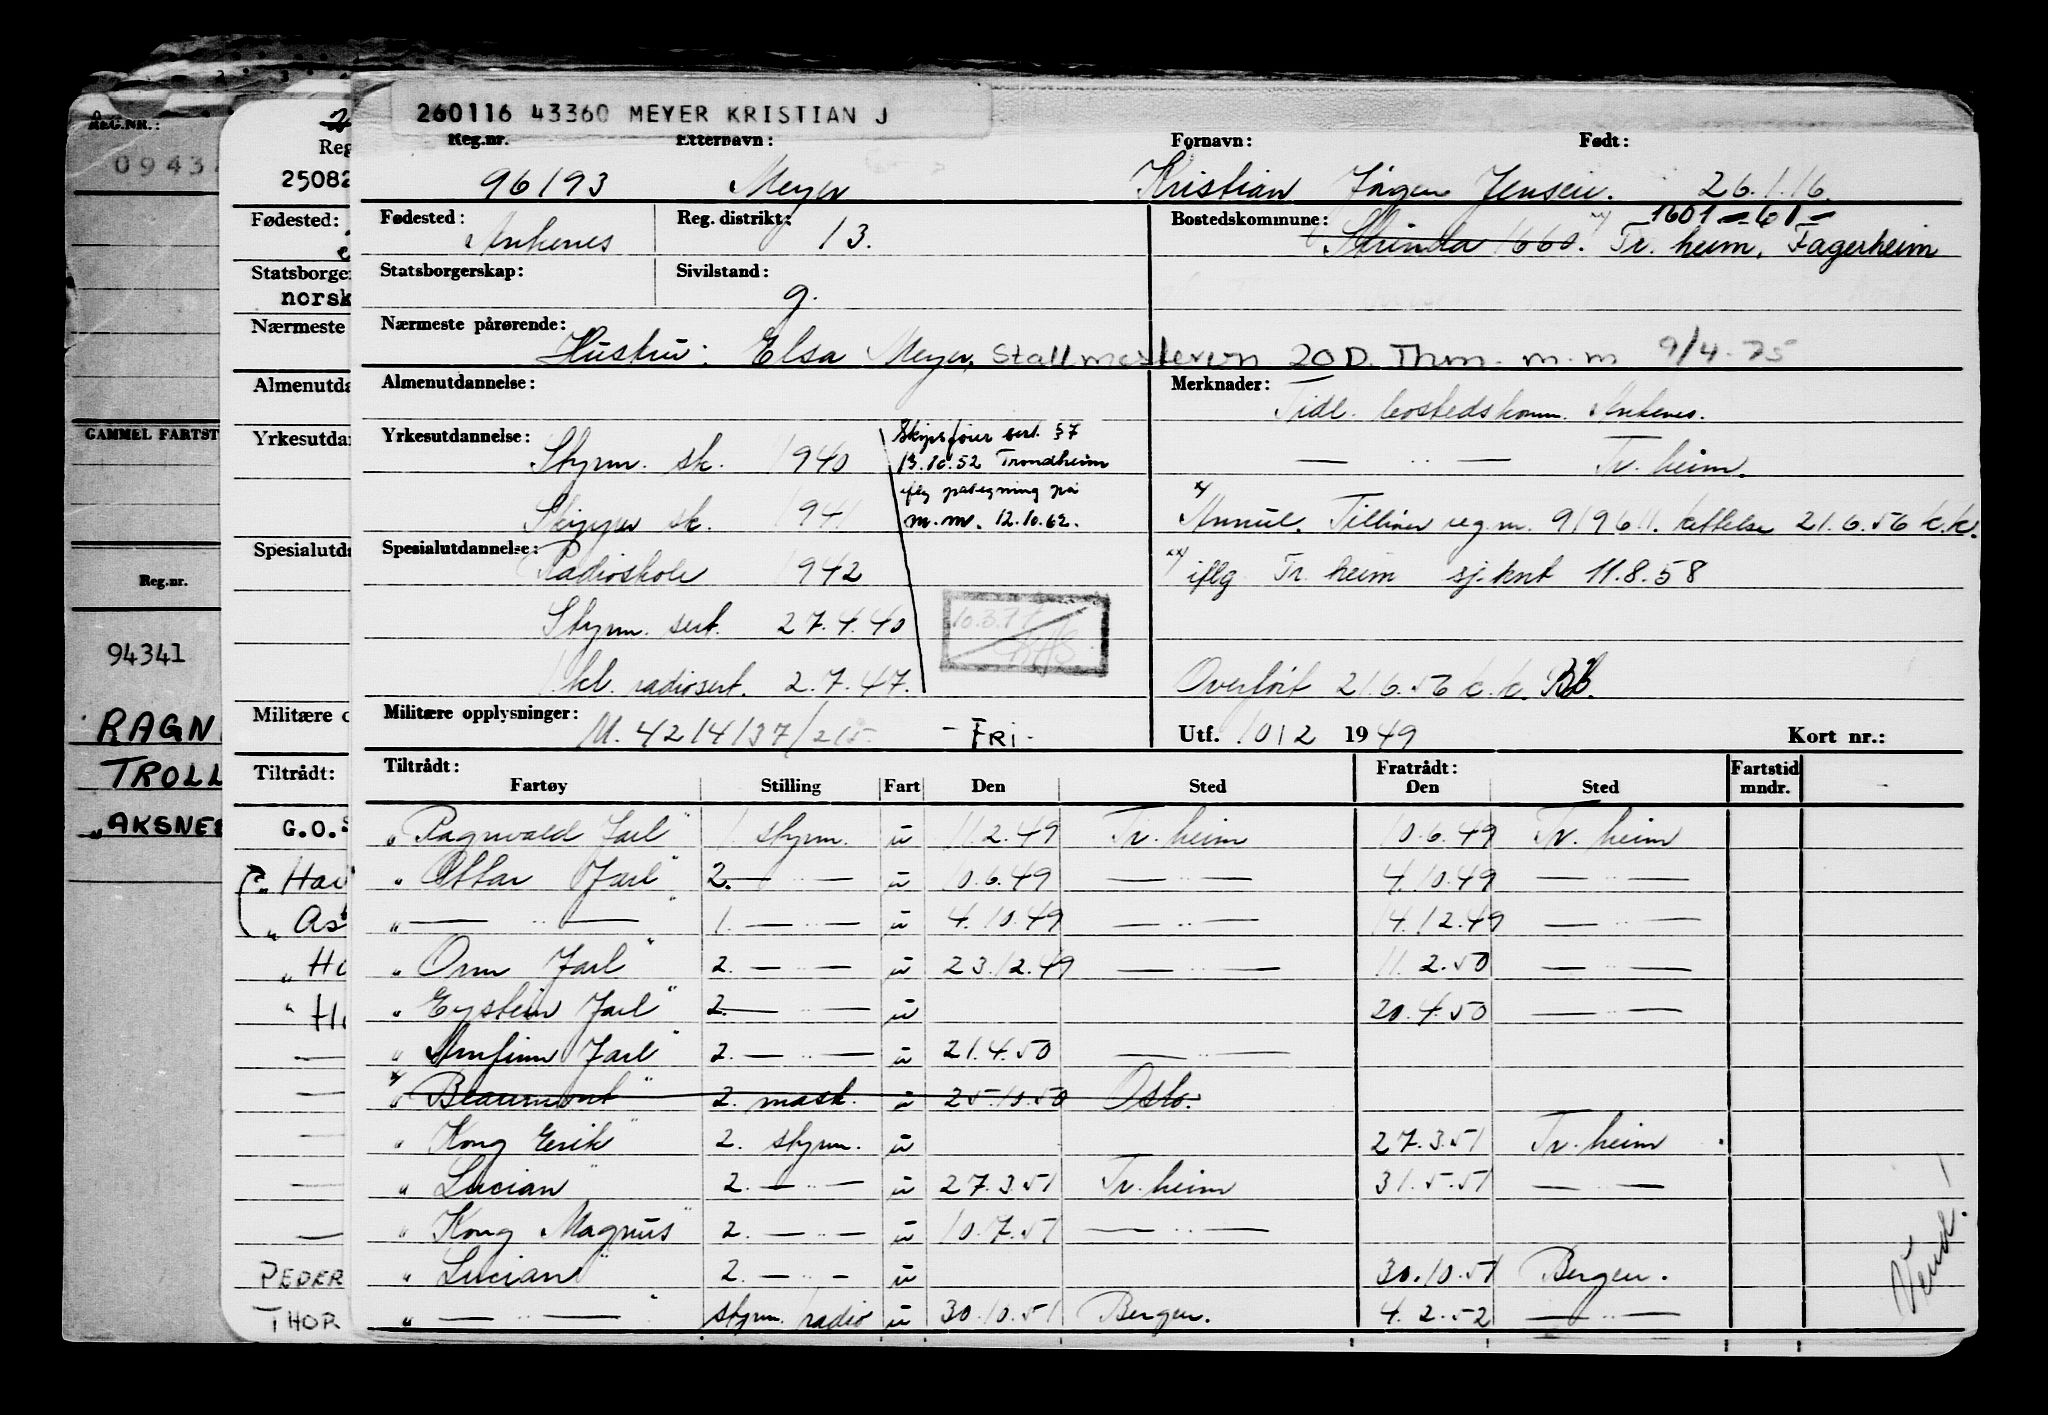 260116 43360 MEYER KRISTIAN J
Reg.nr. Etternavn: Fornavn: Født:
96193 Meyer Kristian Jörgen Jensen. 26.1.16.
Fødested: Ankenes Reg. distrikt: 13. Bostedskommune: Strinda 1660. xx/ 1601-60- Tr. heim, Fagerheim
Statsborgerskap: Sivilstand: g.
Nærmeste pårørende: Hustru: Elsa Meyer, Stallmesterveien 20D. Thm. m.m 9/4-75
Almenutdannelse:
Merknader: Tidl. bostedskomm. Ankenes.
— .. — Tr. heim.
Yrkesutdannelse: Styrm. sk. 1940
Skipper sk. 1941
Skipsfører sert. §7
13.10.52 Trondheim
iflg påtegning på
m.m. 12.10.62.
x/ Annul. Tilhører reg.nr. 91961. rettelse 21.6.56 k.k.
Spesialutdannelse: Radioskole 1942
Styrm. sert. 27.4.40
1 kl. radiosert. 2.7.47.
10.3.77
xx/ iflg Tr. heim sj.knt 11.8.58
Overført 21.6.56 k.k.
Militære opplysninger: M. 4214/37/215 - FRI -
Utf. 10/2 1949 Kort nr.:
Tiltrådt: Fratrådt: Fartstid
Fartøy Stilling Fart Den Sted Den Sted mndr.
" Ragnvald Jarl" 1. styrm. u 11.2.49 Tr. heim 10.6.49 Tr. heim
" Ottar Jarl" 2. — .. — u 10.6.49 — .. — 4.10.49 — .. —
" — .. — " 1. — .. — u 4.10.49 — .. — 14.12.49 — .. —
" Orm Jarl" 2. — .. — u 23.12.49 — .. — 11.2.50 — .. —
" Eystein Jarl" 2. — .. — u 20.4.50 — .. —
" Arnfinn Jarl" 2. — .. — u 21.4.50 — .. —
x/ " Beaumont" 2. mask. u 25.10.50 Oslo.
" Kong Erik" 2. styrm. u 27.3.51 Tr. heim
" Lucian" 2. — .. — u 27.3.51 Tr. heim 31.5.51 — .. —
" Kong Magnus" 2. — .. — u 10.7.51 — .. —
" Lucian" 2. — .. — u 30.10.51 Bergen.
" — .. — " styrm. radio u 30.10.51 Bergen. 4.2.52 — .. —
Vend!
Reg
25082
Fødested:
Statsborger
norsk
Nærmeste
Almenutda
Yrkesutdan
Spesialutda
Militære o
Tiltrådt:
G.O.S
" Hav
" Ast
" Ho
" Ho
PEDER
THOR
REG.NR.:
0943
GAMMEL FARTST
Reg.nr.
94341
RAGN
TROLL
"AKSNES